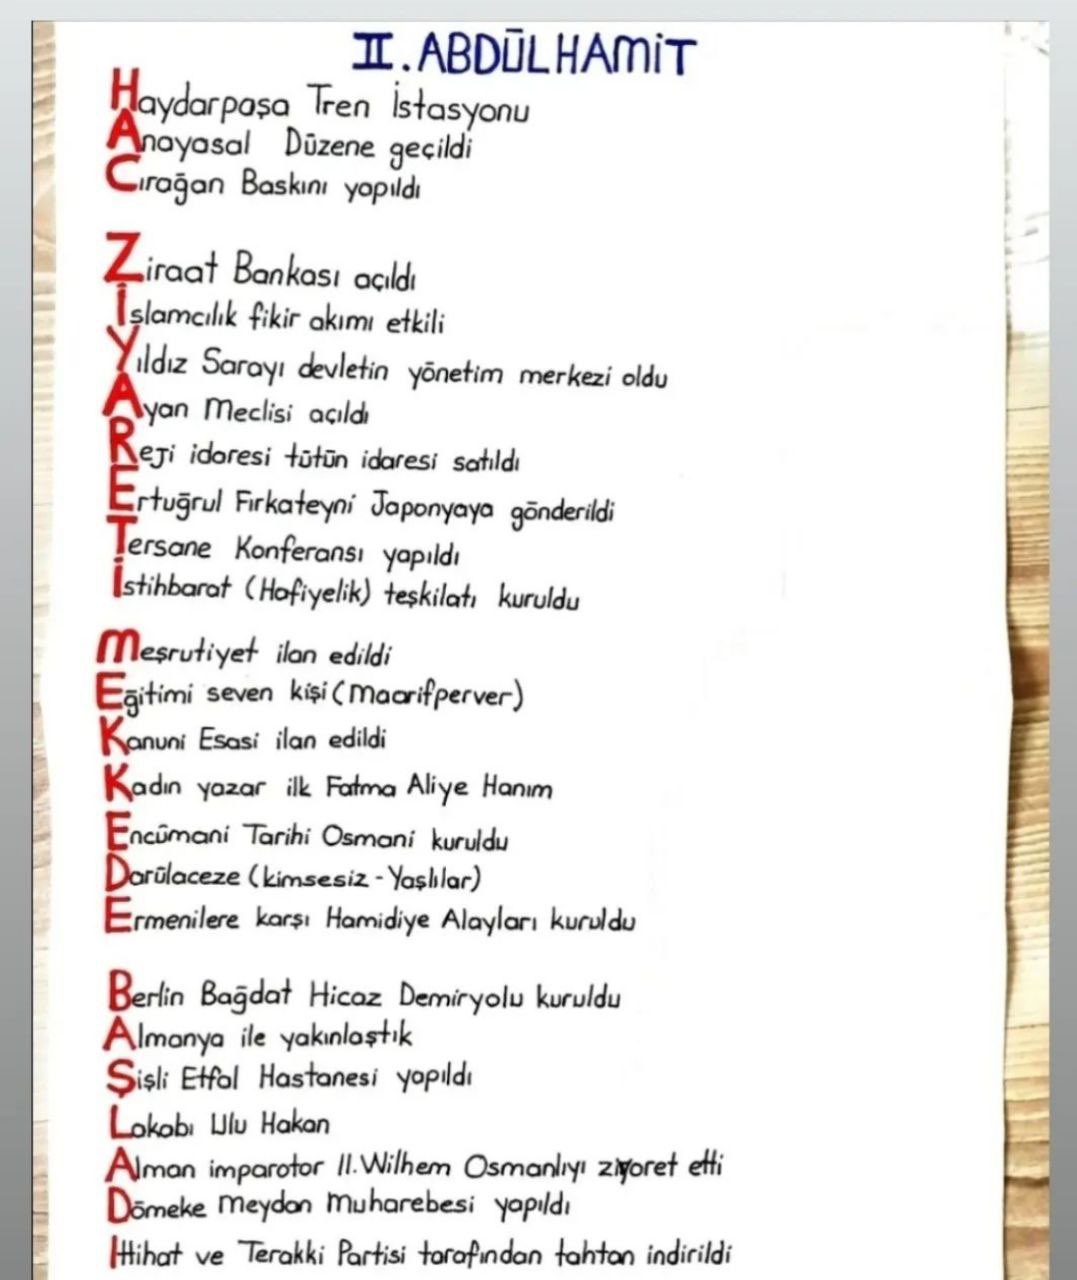 II. ABDÜLHAMİT
Haydarpaşa Tren İstasyonu
Anayasal Düzene geçildi
Cırağan Baskını yapıldı
Ziraat Bankası açıldı
İslamcılık fikir akımı etkili
Yıldız Sarayı devletin yönetim merkezi oldu
Ayan Meclisi açıldı
Reji idaresi tütün idaresi satıldı
Ertuğrul Fırkateyni Japonyaya gönderildi
Tersane Konferansı yapıldı
İstihbarat (Hafiyelik) teşkilatı kuruldu
Meşrutiyet ilan edildi
Eğitimi seven kişi (Maarifperver)
Kanuni Esasi ilan edildi
Kadın yazar ilk Fatma Aliye Hanım
Encümani Tarihi Osmani kuruldu
Darülaceze (kimsesiz - Yaşlılar)
Ermenilere karşı Hamidiye Alayları kuruldu
Berlin Bağdat Hicaz Demiryolu kuruldu
Almanya ile yakınlaştık
Şişli Etfal Hastanesi yapıldı
Lakabı Ulu Hakan
Alman imparator II. Wilhem Osmanlıyı ziyaret etti
Dömeke Meydan Muharebesi yapıldı
Ittihat ve Terakki Partisi tarafından tahtan indirildi